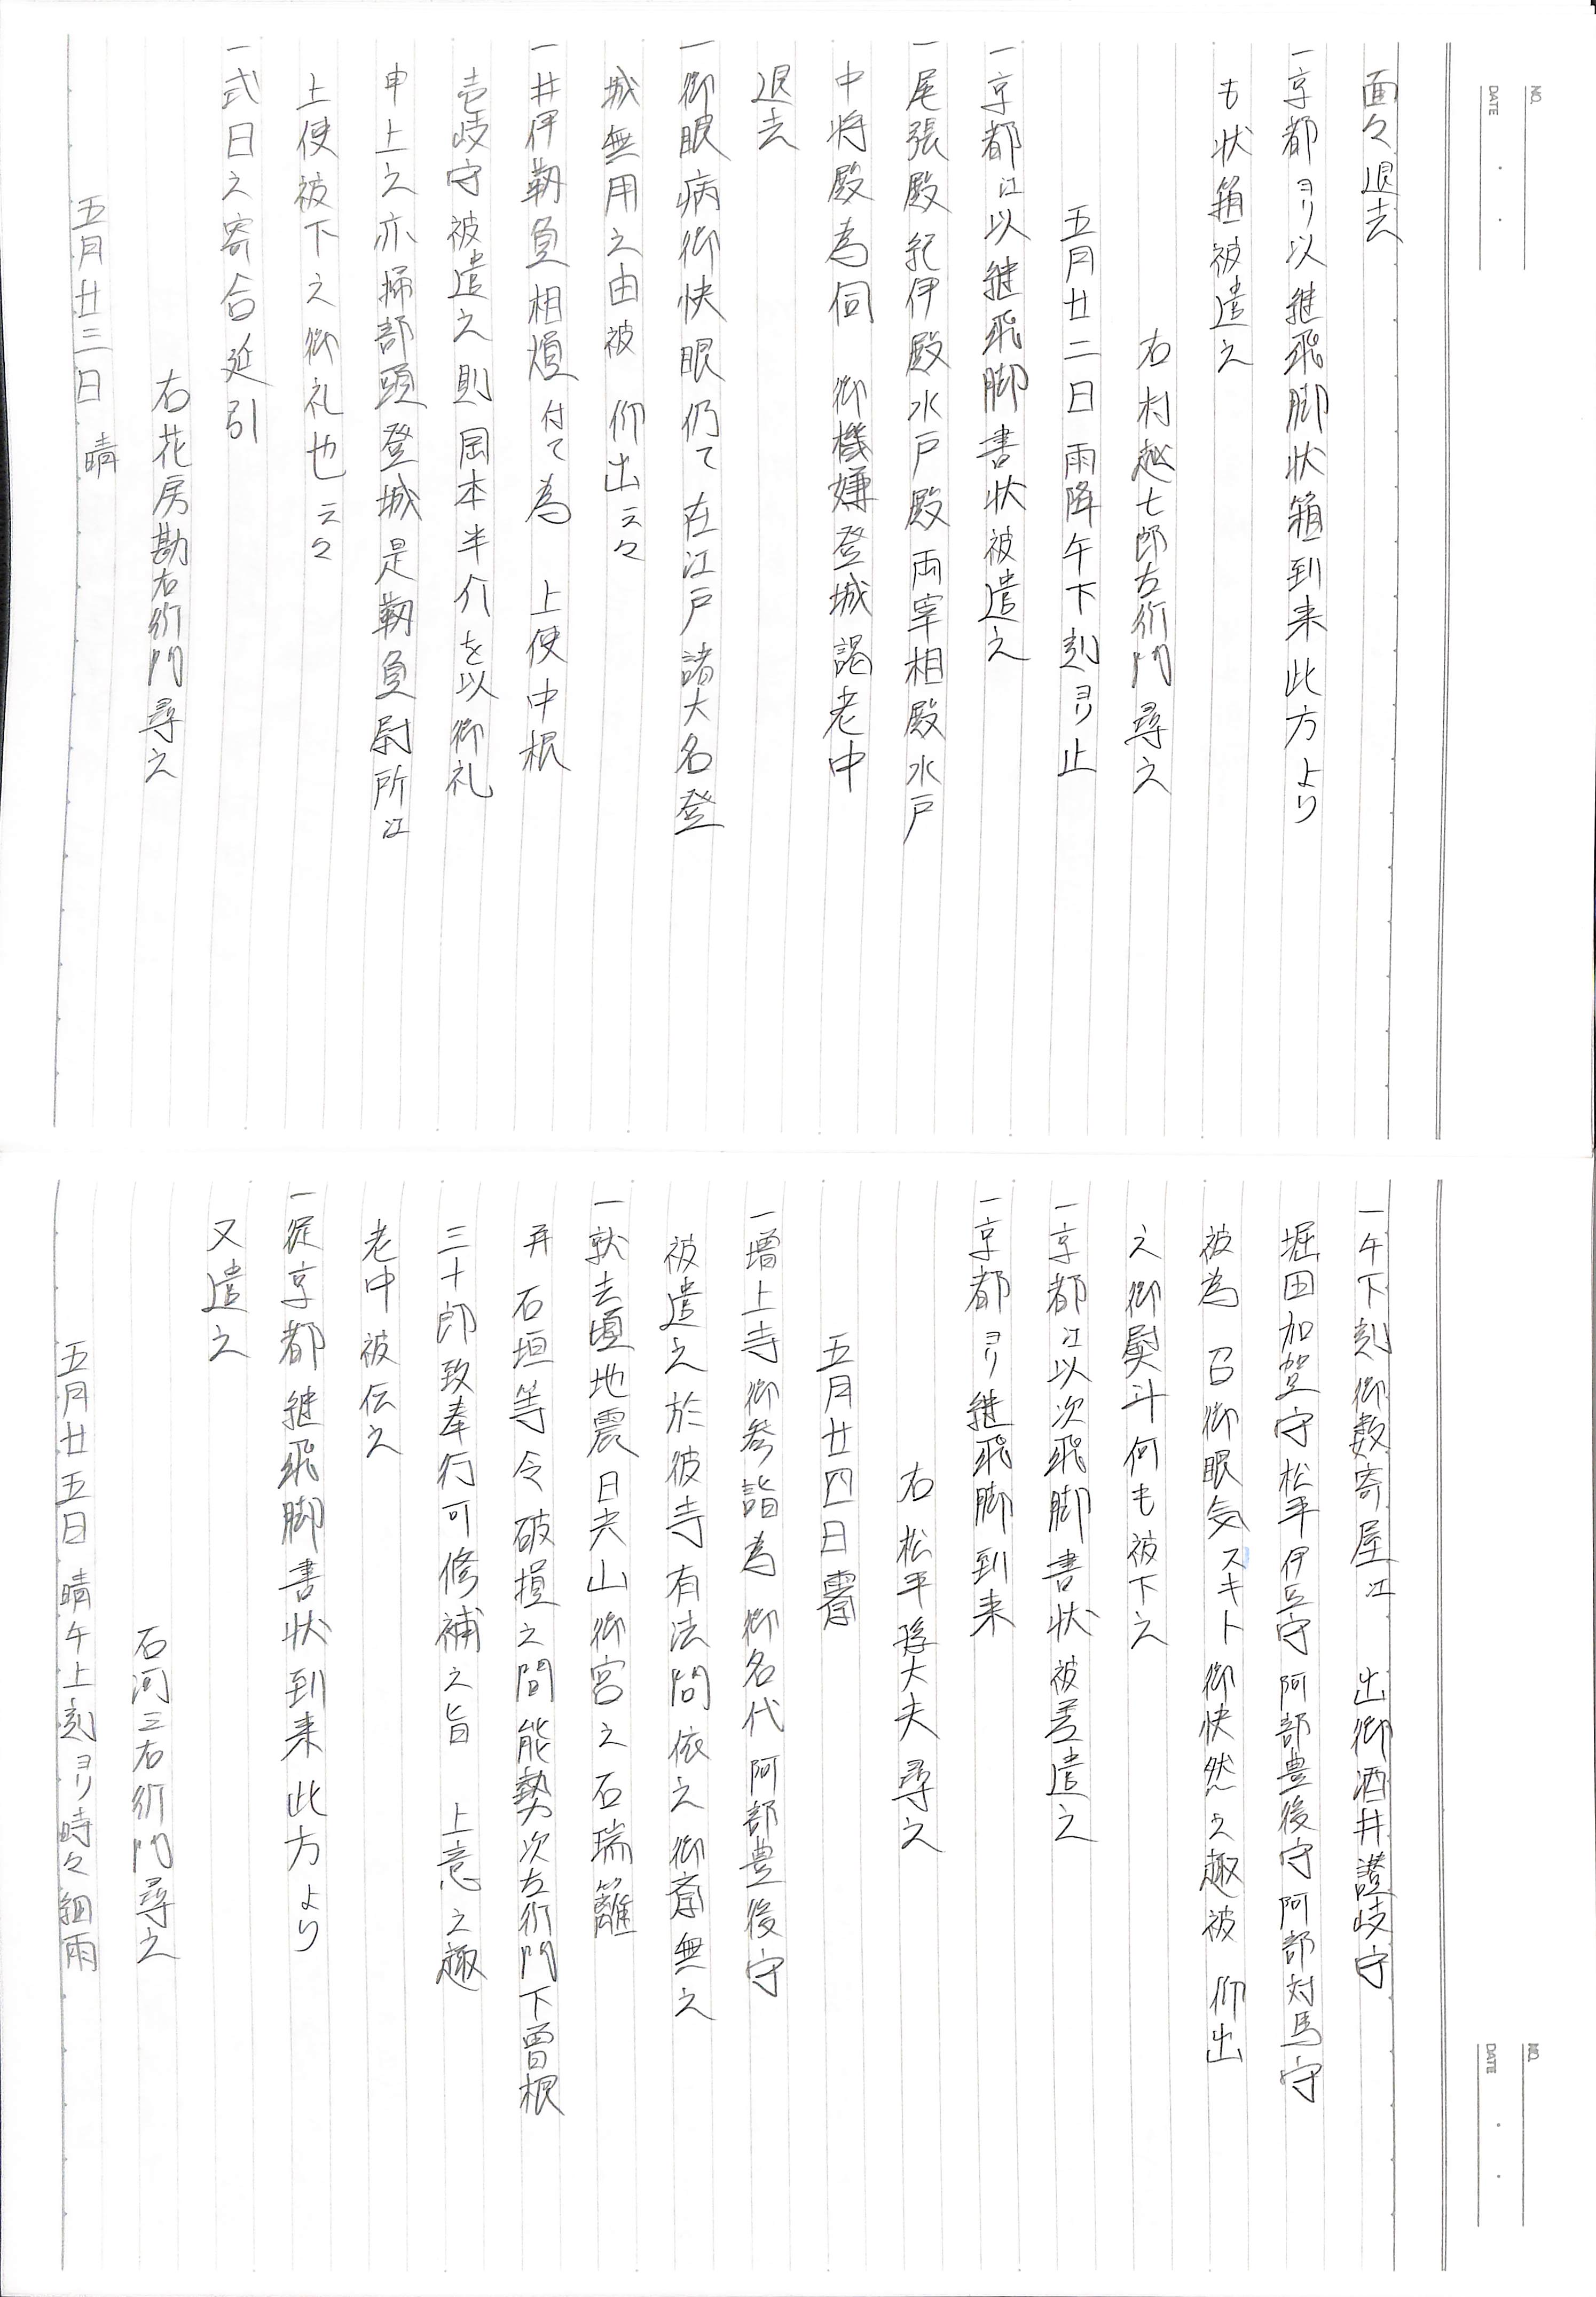 NO.
DATE
面々退去
一京都ヨリ以継飛脚状箱到来此方より
も状箱被遣之
右村越七郎左衛門尋之
五月廿二日雨降午下刻ヨリ止
一京都江以継飛脚書状被遣之
一尾張殿紀伊殿水戸殿両宰相殿水戸
中将殿為伺 御機嫌登城謁老中
退去
一御眼病御快眼仍て在江戸諸大名登
城無用之由被 仰出云々
一井伊靭負相煩付て為 上使中根
壱岐守被遣之則岡本半介を以御礼
申上之亦掃部頭登城是靭負尉所江
上使被下之御礼也云々
一式日之寄合延引
右花房勘右衛門尋之
五月廿三日 晴
NO.
DATE
一午下刻御数寄屋江 出御酒井讃岐守
堀田加賀守松平伊豆守阿部豊後守阿部対馬守
被為 召御眼気スキト御快然之趣被 仰出
之御熨斗何も被下之
一京都江以次飛脚書状被差遣之
一京都ヨリ継飛脚到来
右松平隼大夫尋之
五月廿四日霽
一増上寺御参詣為 御名代阿部豊後守
被遣之於彼寺有法問依之御斎無之
一就去頃地震日光山御宮之石瑞籬
并石垣等令破損之間能勢次左衛門下曽根
三十郎致奉行可修補之旨 上意之趣
老中被伝之
一従京都継飛脚書状到来此方より
又遣之
石河三右衛門尋之
五月廿五日晴午上刻ヨリ時々細雨